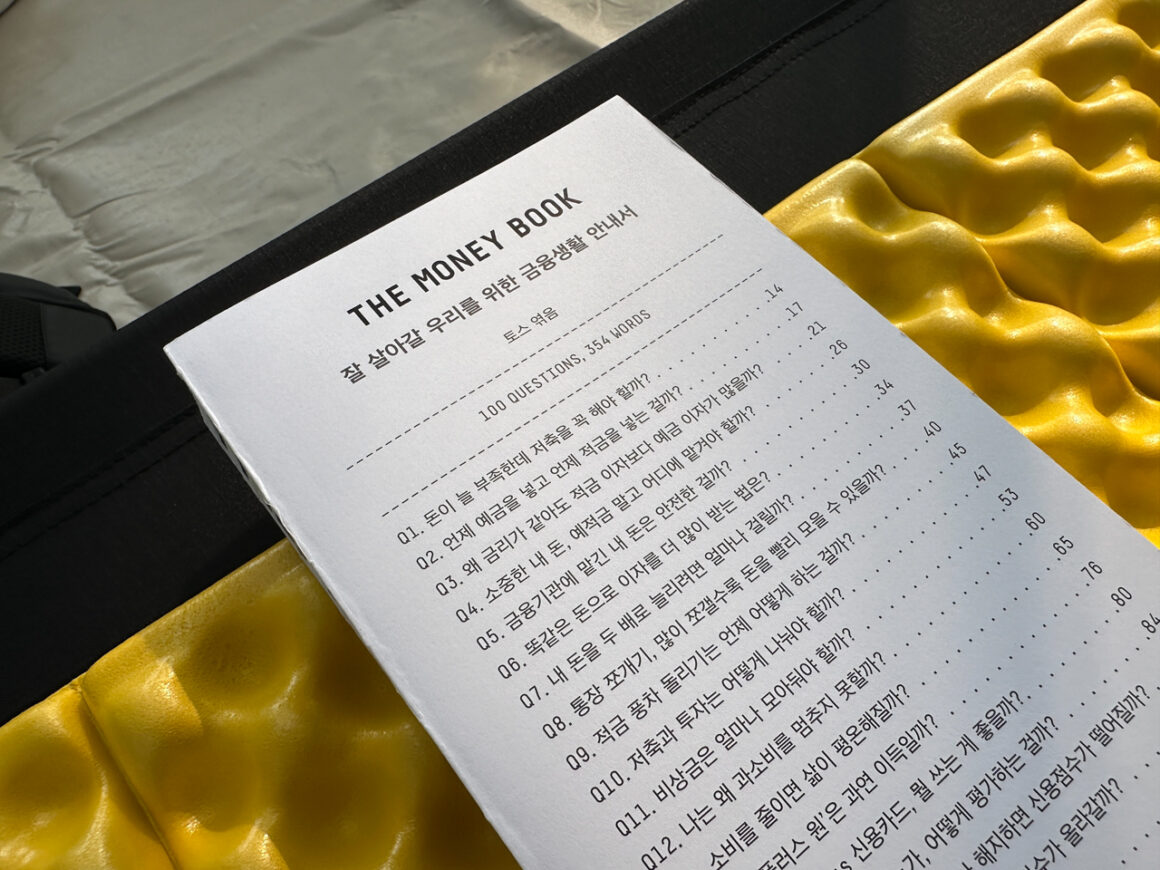 THE MONEY BOOK
잘 살아갈 우리를 위한 금융생활 안내서
토스 엮음
100 QUESTIONS, 354 WORDS
Q1. 돈이 늘 부족한데 저축을 꼭 해야 할까? . . . . . . . . . .14
Q2. 언제 예금을 넣고 언제 적금을 넣는 걸까? . . . . . . . . .17
Q3. 왜 금리가 같아도 적금 이자보다 예금 이자가 많을까? . . . . 21
Q4. 소중한 내 돈, 예적금 말고 어디에 맡겨야 할까? . . . . . . 26
Q5. 금융기관에 맡긴 내 돈은 안전한 걸까? . . . . . . . . . 30
Q6. 똑같은 돈으로 이자를 더 많이 받는 법은? . . . . . . . . 34
Q7. 내 돈을 두 배로 늘리려면 얼마나 걸릴까? . . . . . . . . 37
Q8. 통장 쪼개기, 많이 쪼갤수록 돈을 빨리 모을 수 있을까? . . . 40
Q9. 적금 풍차 돌리기는 언제 어떻게 하는 걸까? . . . . . . . 45
Q10. 저축과 투자는 어떻게 나눠야 할까? . . . . . . . . . . 47
Q11. 비상금은 얼마나 모아둬야 할까? . . . . . . . . . . .53
Q12. 나는 왜 과소비를 멈추지 못할까? . . . . . . . . . . 60
소비를 줄이면 삶이 평온해질까? . . . . . . . . . . 65
플러스 원'은 과연 이득일까? . . . . . . . . . . .76
신용카드, 뭘 쓰는 게 좋을까? . . . . . . . . . .80
어떻게 평가하는 걸까? . . . . . . . . . 84
해지하면 신용점수가 떨어질까?
수가 올라갈까?